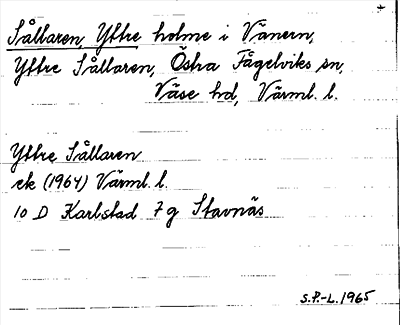 Sållaren, Yttre holme i Vänern,
Yttre Sållaren, Östra Fågelviks sn,
Väse hd, Värml. l.
Yttre Sållaren
ek (1964) Värml. l.
10 D Karlstad 7 g Stavnäs
S.P.-L. 1965